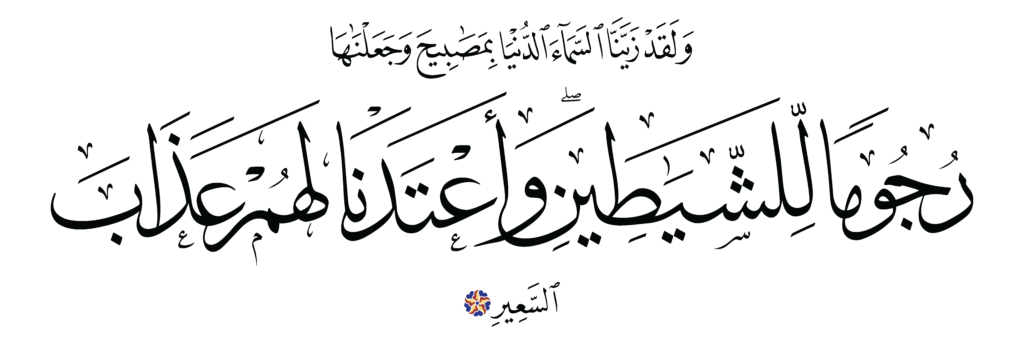 وَلَقَدْ زَيَّنَّا ٱلسَّمَآءَ ٱلدُّنْيَا بِمَصَٰبِيحَ وَجَعَلْنَٰهَا
رُجُومًا لِّلشَّيَٰطِينِ ۖ وَأَعْتَدْنَا لَهُمْ عَذَابَ
ٱلسَّعِيرِ